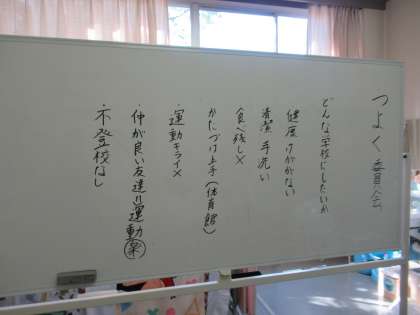 つよく委員会
どんな学校にしたいか
健康 けががない
清潔 手洗い
食べ残し×
かたづけ上手(体育館)
・運動キライ×
・仲が良い友達〃運動楽
・不登校なし